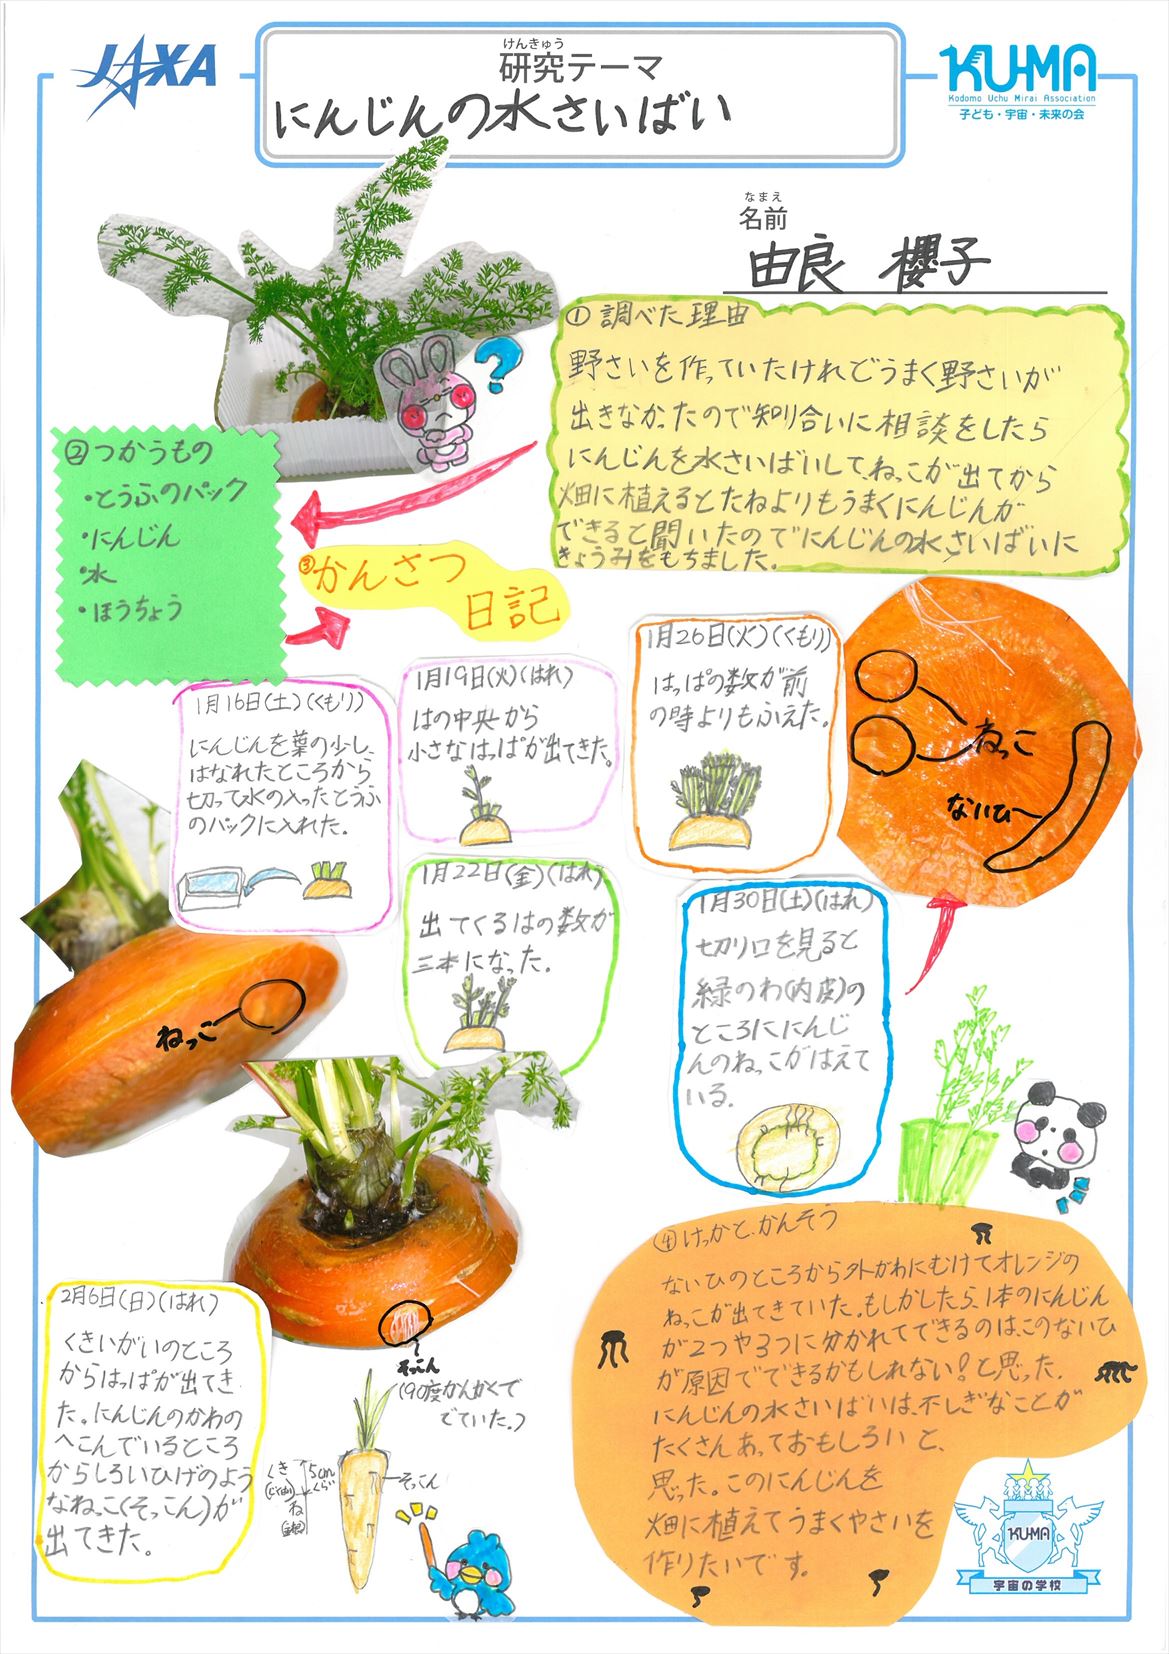 JAXA
けんきゅう
研究テーマ
にんじんの水さいばい
KU-MA
Kodomo Uchu Mirai Association
子ども・宇宙・未来の会
なまえ
名前
由良 櫻子
① 調べた理由
野さいを作っていたけれどうまく野さいが
出きなかったので知り合いに相談をしたら
にんじんを水さいばいして、ねっこが出てから
畑に植えるとたねよりもうまくにんじんが
できると聞いたのでにんじんの水さいばいに
きょうみをもちました。
?
② つかうもの
・とうふのパック
・にんじん
・水
・ほうちょう
③かんさつ
日記
1月16日(土)(くもり)
にんじんを葉の少し、
はなれたところから
切って水の入ったとうふ
のパックに入れた。
1月19日(火)(はれ)
はの中央から
小さなはっぱが出てきた。
1月22日(金)(はれ)
出てくるはの数が
三本になった。
1月26日(火)(くもり)
はっぱの数が前
の時よりもふえた。
ねっこ
ないひ
1月30日(土)(はれ)
切り口を見ると
緑のわ(内皮)の
ところににんじ
んのねっこがはえて
いる.
ねっこ
2月6日(日)(はれ)
くきいがいのところ
からはっぱが出てき
た。にんじんのかわの
へこんでいるところ
からしろいひげのよう
なねっこ(そっこん)が
出てきた。
そっこん
(90度かんかくで
でていた。)
くき
5cm
くらい
ね
そっこん
④ けっかと、かんそう
ないひのところから外がわにむけてオレンジの
ねっこが出てきていた。もしかしたら、1本のにんじん
が2つや3つに分かれてできるのは、このないひ
が原因でできるかもしれない!と思った.
にんじんの水さいばいは、不しぎなことが
たくさんあっておもしろいと、
思った。このにんじんを
畑に植えてうまくやさいを
作りたいです。
KUMA
宇宙の学校